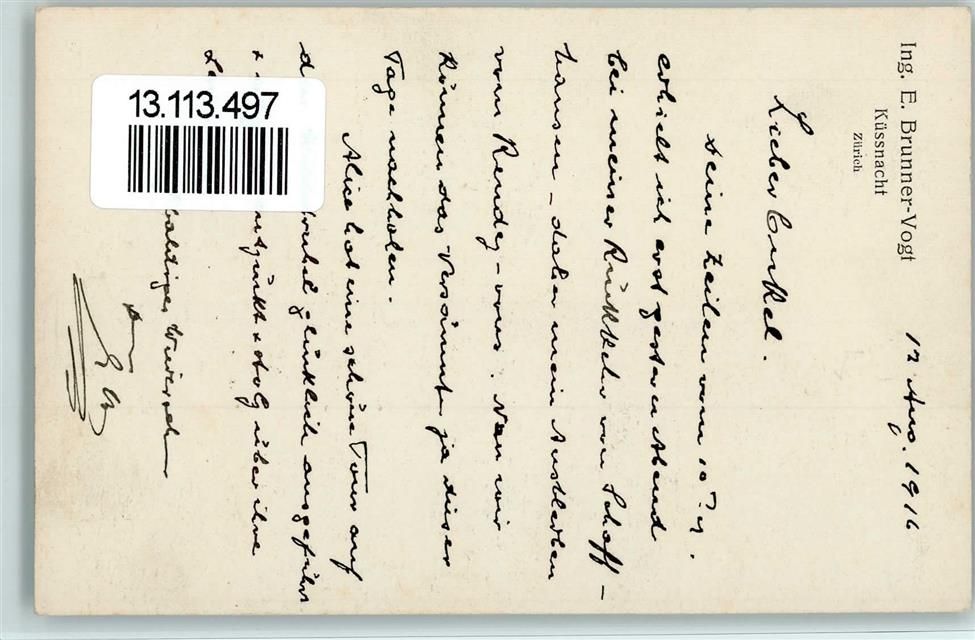 Ing. E. Brunner-Vogt
Küssnacht
Zürich
12 Aug. 1916
Lieber Onkel.
Deine Zeilen vom 10
erhielt ich erst gestern Abend
bei meiner Rückkehr von Schaff-
hausen – daher mein Ausbleiben
vom Rendez-vous. Nun wir
können das Versäumte ja dieser
Tage nachholen.
Alice hat eine schöne Tour auf
glücklich ausgeführt
& stolz über ihre
baldiges Wiedersehn
13.113.497